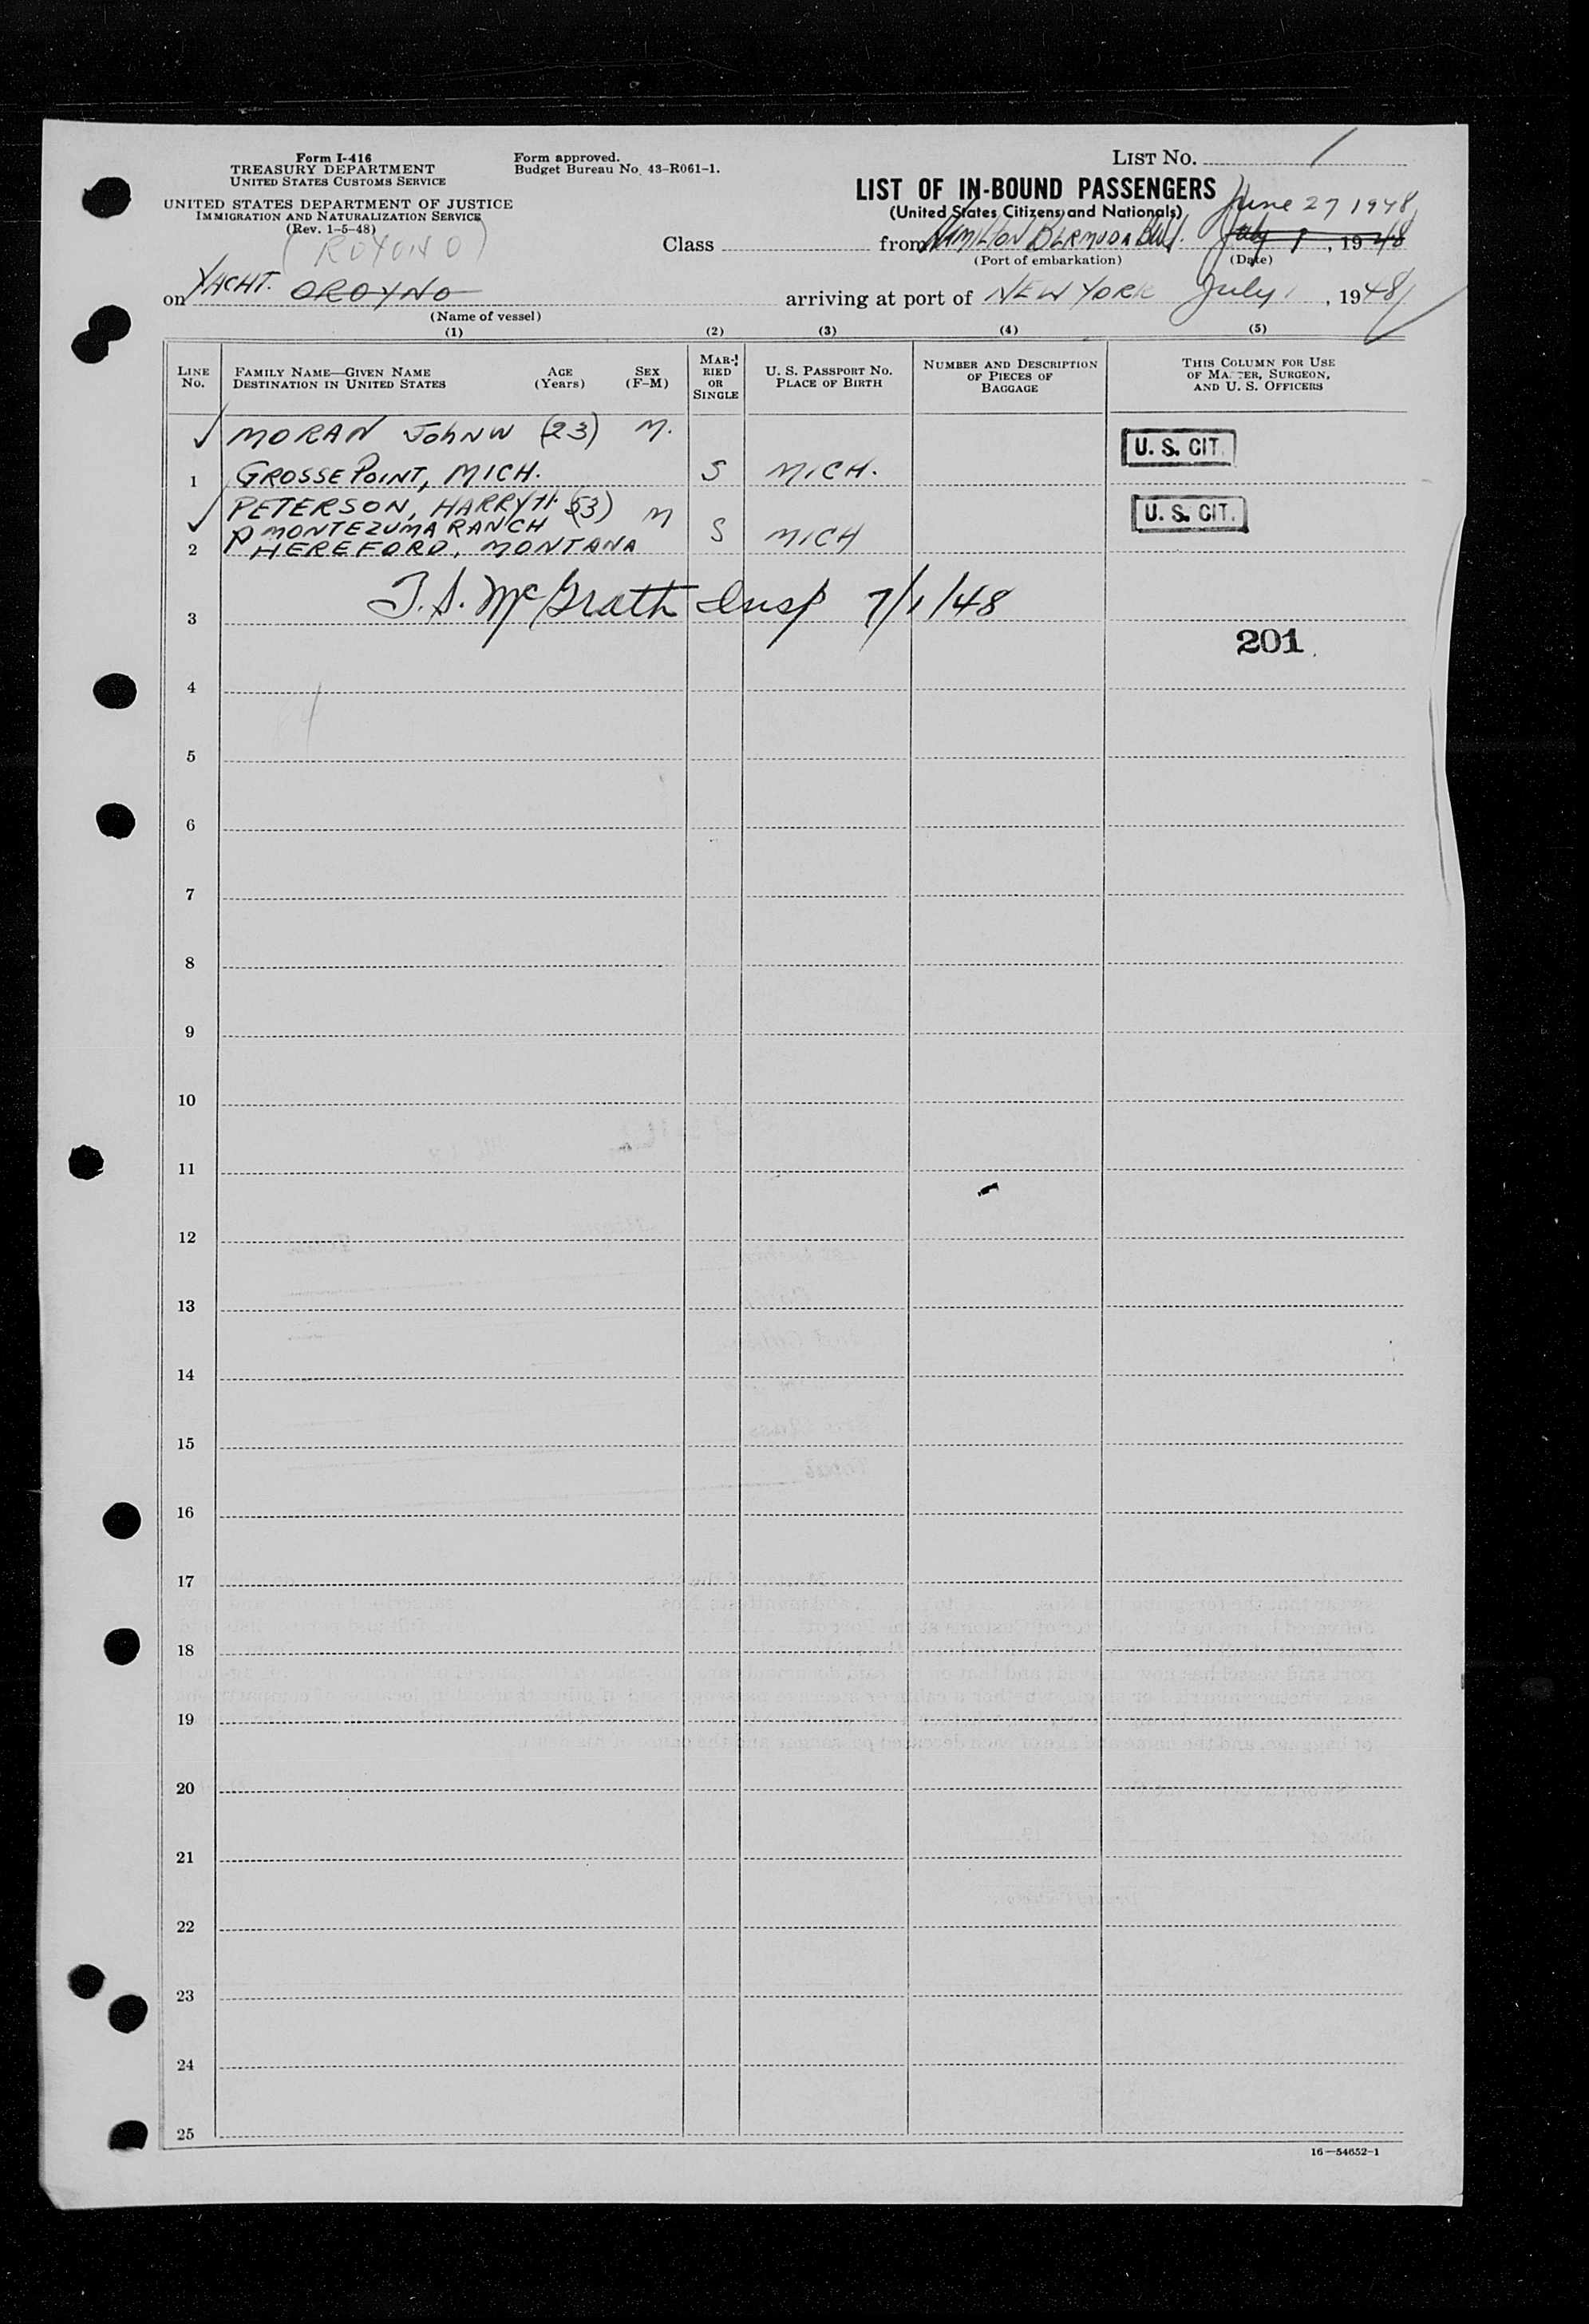 Form I-416
TREASURY DEPARTMENT
UNITED STATES CUSTOMS SERVICE
UNITED STATES DEPARTMENT OF JUSTICE
IMMIGRATION AND NATURALIZATION SERVICE
(Rev. 1-5-48)
Form approved.
Budget Bureau No. 43-R061-1.
LIST No. 1
LIST OF IN-BOUND PASSENGERS
(United States Citizens and Nationals)
June 27 1948
Class from HAMILTON BERMUDA July 1, 1948
(Port of embarkation) (Date)
(ROYONO)
on YACHT. OROYNO arriving at port of NEW YORK July 1, 1948
(Name of vessel)
(1) (2) (3) (4) (5)
LINE No.
FAMILY NAME—GIVEN NAME
DESTINATION IN UNITED STATES
AGE (Years)
SEX (F-M)
MARRIED OR SINGLE
U. S. PASSPORT No.
PLACE OF BIRTH
NUMBER AND DESCRIPTION OF PIECES OF BAGGAGE
THIS COLUMN FOR USE OF MASTER, SURGEON, AND U. S. OFFICERS
MORAN JohN W (23) M. U. S. CIT.
1 GROSSE POINT, MICH. S MICH.
PETERSON, HARRY H (53) M U. S. CIT.
MONTEZUMA RANCH S MICH
2 HEREFORD, MONTANA
T. S. McGrath Insp 7/1/48
3
201
4
5
6
7
8
9
10
11
12
13
14
15
16
17
18
19
20
21
22
23
24
25
16—54652-1